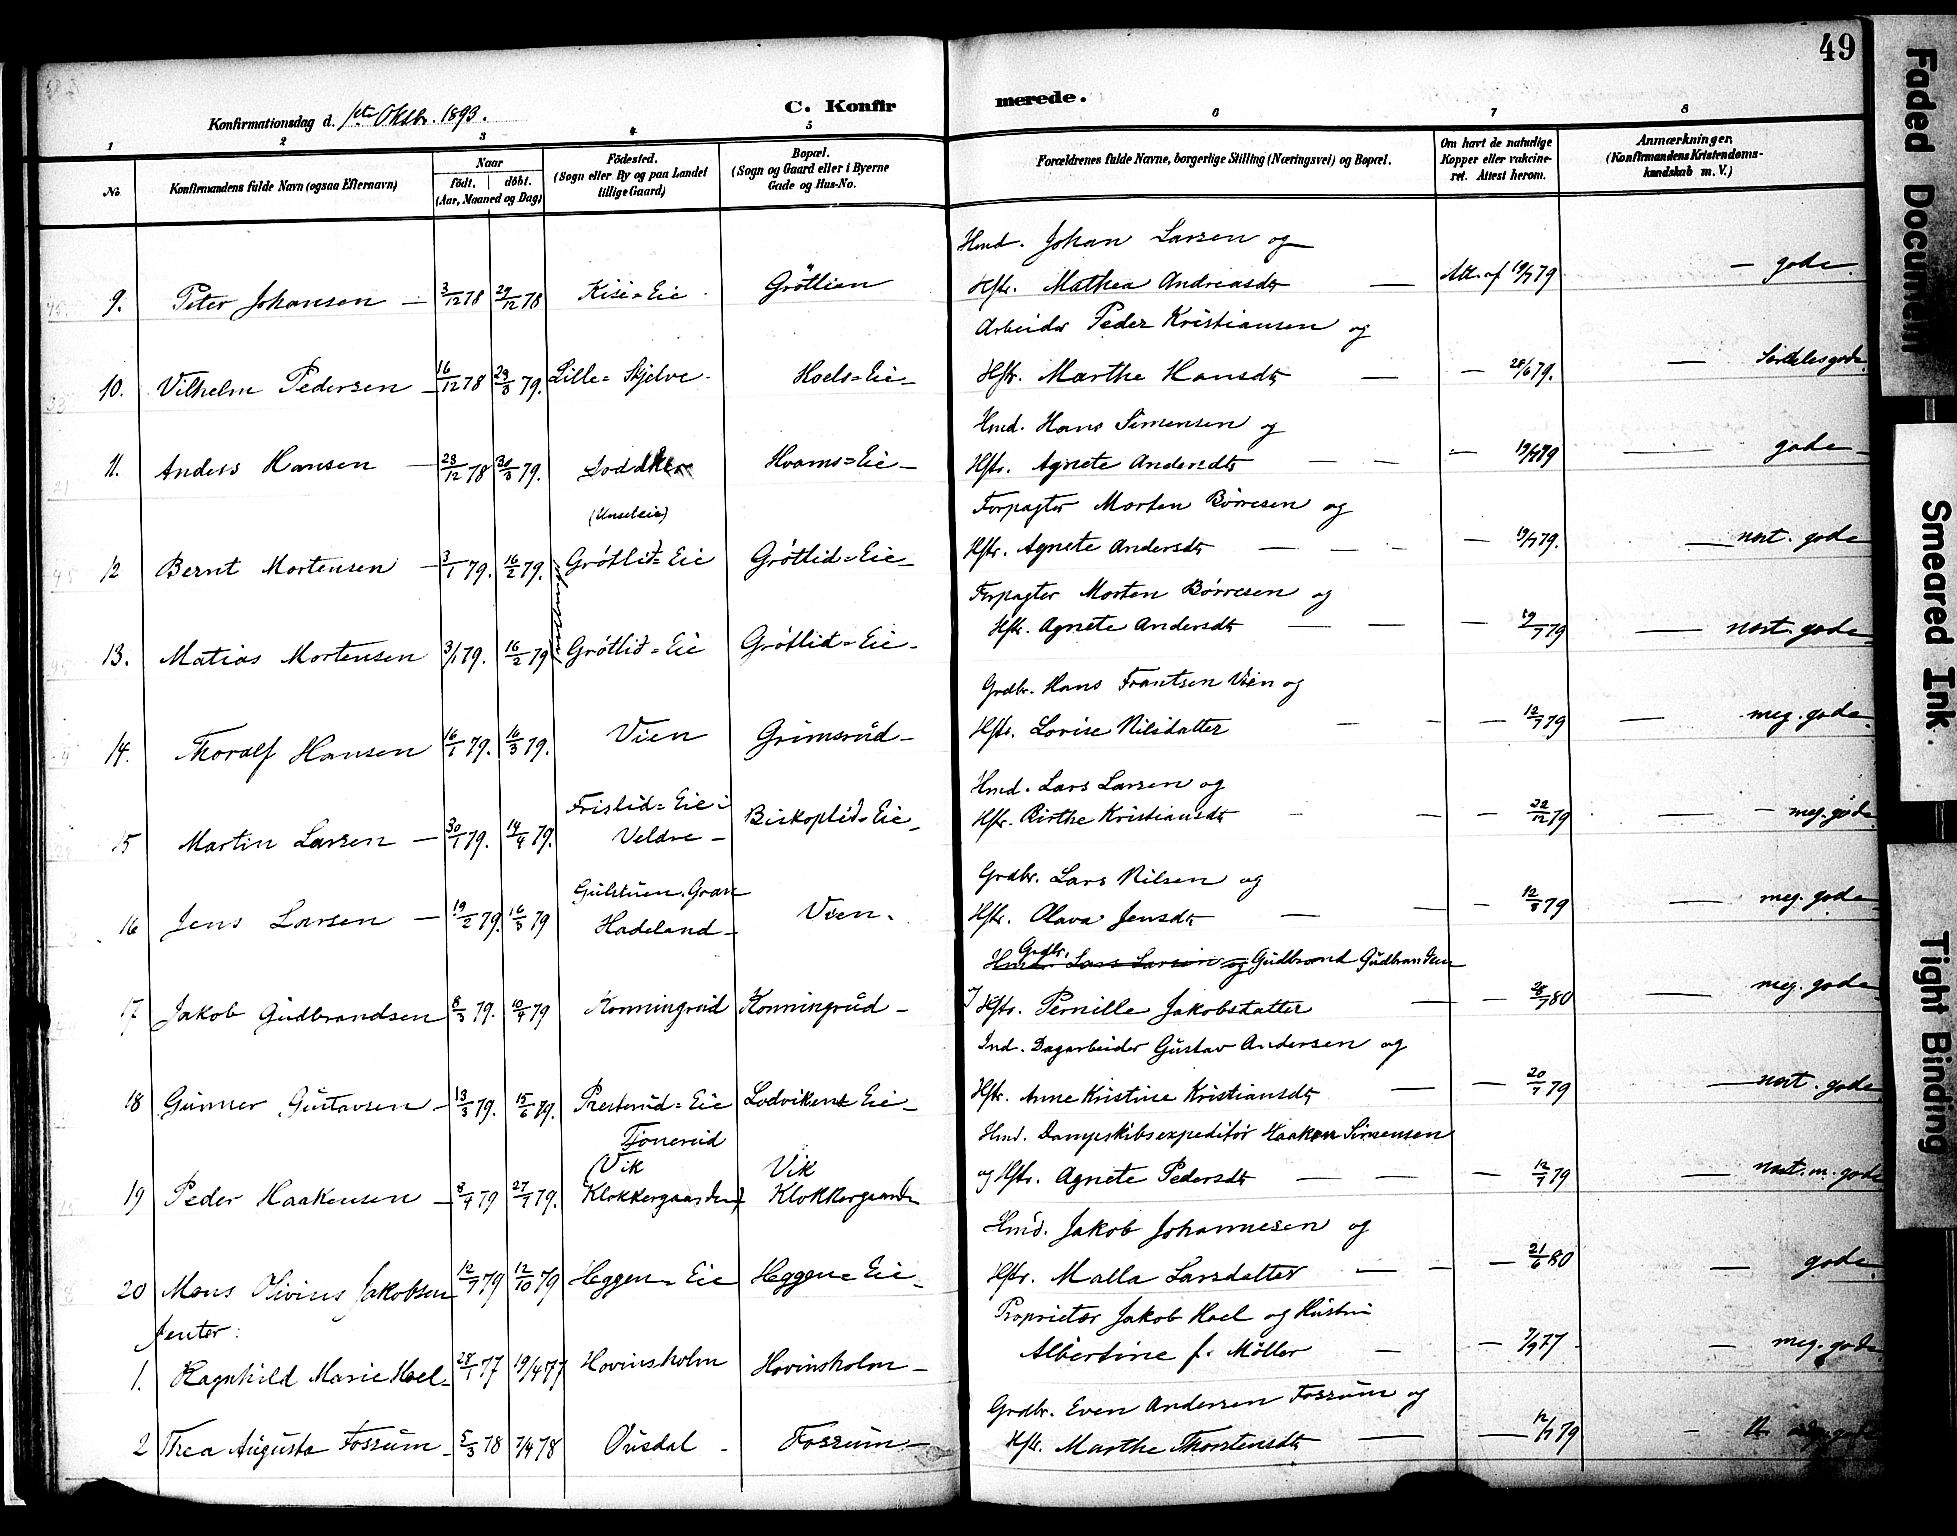 49
Konfirmationsdag d. 1ste Oktbr. 1893.
C. Konfirmerede.
1 2 3 4 5 6 7 8
No.
Konfirmandens fulde Navn (ogsaa Efternavn)
Naar
födt. döbt.
(Aar, Maaned og Dag)
Födested.
(Sogn eller By og paa Landet
tillige Gaard)
Bopæl.
(Sogn og Gaard eller i Byerne
Gade og Hus-No.
Forældrenes fulde Navne, borgerlige Stilling (Næringsvei) og Bopæl.
Om havt de naturlige
Kopper eller vakcine-
ret. Attest herom.
Anmærkninger.
(Konfirmandens Kristendoms-
kundskab m. V.)
Hmd. Johan Larsen og
9. Peter Johansen – 3/12 78 29/12 78 Kise=Eie Gröttlien Hstr. Mathea Andreasdtr — Att. af 19/7 79 – gode.
Arbeider Peder Kristiansen og
10. Vilhelm Pedersen – 16/12 78 23/3 79. Lille=Skjelve. Hoels=Eie – Hstr. Marthe Hansdtr — – 28/6 79. — Særdeles gode.
Hmd. Hans Simensen og
11. Anders Hansen – 23/12 78 30/3 79. Hvams=Eie – Hstr. Agnete Andersdtr — — – 19/7 79 — gode –
Forpagter Morten Börresen og
12 Bernt Mortensen – 3/1 79. 16/2 79. Gröttlid=Eie Gröttlid=Eie – Hstr. Agnete Andersdtr — — – – 19/7 79. — næst. gode
Forpagter Morten Börresen og
13. Matias Mortensen 3/1 79. 16/2 79 Gröttlid=Eie Gröttlid=Eie – Hstr. Agnete Andersdtr — — – 19/7 79 — næst. gode
Grdbr. Hans Frantsen Vien og
14. Thoralf Hansen 16/1 79. 16/3 79. Vien Grimsrud – Hstr. Lovise Nilsdatter — – – 12/7 79 — meg. gode
Hmd. Lars Larsen og
Fristid=Eie i
15 Martin Larsen – 30/1 79. 14/4 79. Veldre – Biskoplid=Eie – Hstr. Birthe Kristiansdtr – — – 22/12 79 – meg. gode
Grdbr. Lars Nilsen og
Gulstuen. Gran
16 Jens Larsen – 19/2 79. 16/3 79 Hadeland – Vien. Hstr. Olava Jensdtr — — – 12/8 79 — meg. gode
Grdbr.
Hmd. Lars Larsen og Gudbrand Gudbrandsen
17 Jakob Gudbrandsen 8/3 79. 10/4 79 Konningrud Konningrud – Hstr. Pernille Jakobsdatter — – 28/7 80 — meg. gode
Ind. Dagarbeider Gustav Andersen og
18 Gunner Gustavsen – 13/3 79. 15/6 79. Presterud=Eie Lodviken=Eie – Hstr. Anne Kristine Kristiansdtr — – 20/7 79 — næst. gode
Hmd. Dampskibsexpeditör Haaken Simensen
Tjönerud
(Vik Vik
19 Peder Haakensen – 8/4 79 27/4 79. Klokkergaarden) Klokkergaarden og Hstr. Agnete Pedersdtr — — – 12/7 79 — næst. m. gode
Hmd. Jakob Johannesen og
20 Mons Olivius Jakobsen 12/7 79 12/10 79 Heggen=Eie Heggen=Eie – Hstr. Malla Larsdatter — – – 21/6 80 — gode
Jenter:
Proprietær Jakob Hoel og Hustru
1. Ragnhild Marie Hoel – 28/1 77 19/4 77 Hovinsholm Hovinsholm – Albertine f. Möller – – 7/9 77 – meg. gode
Grdbr. Even Andersen Fossum og
2 Thea Augusta Fossum – 5/3 78 7/4 78 Ousdal – Fossum – Hstr. Marthe Thorstensdtr — — 12/7 79 –
Faded Document
Smeared Ink.
Tight Binding